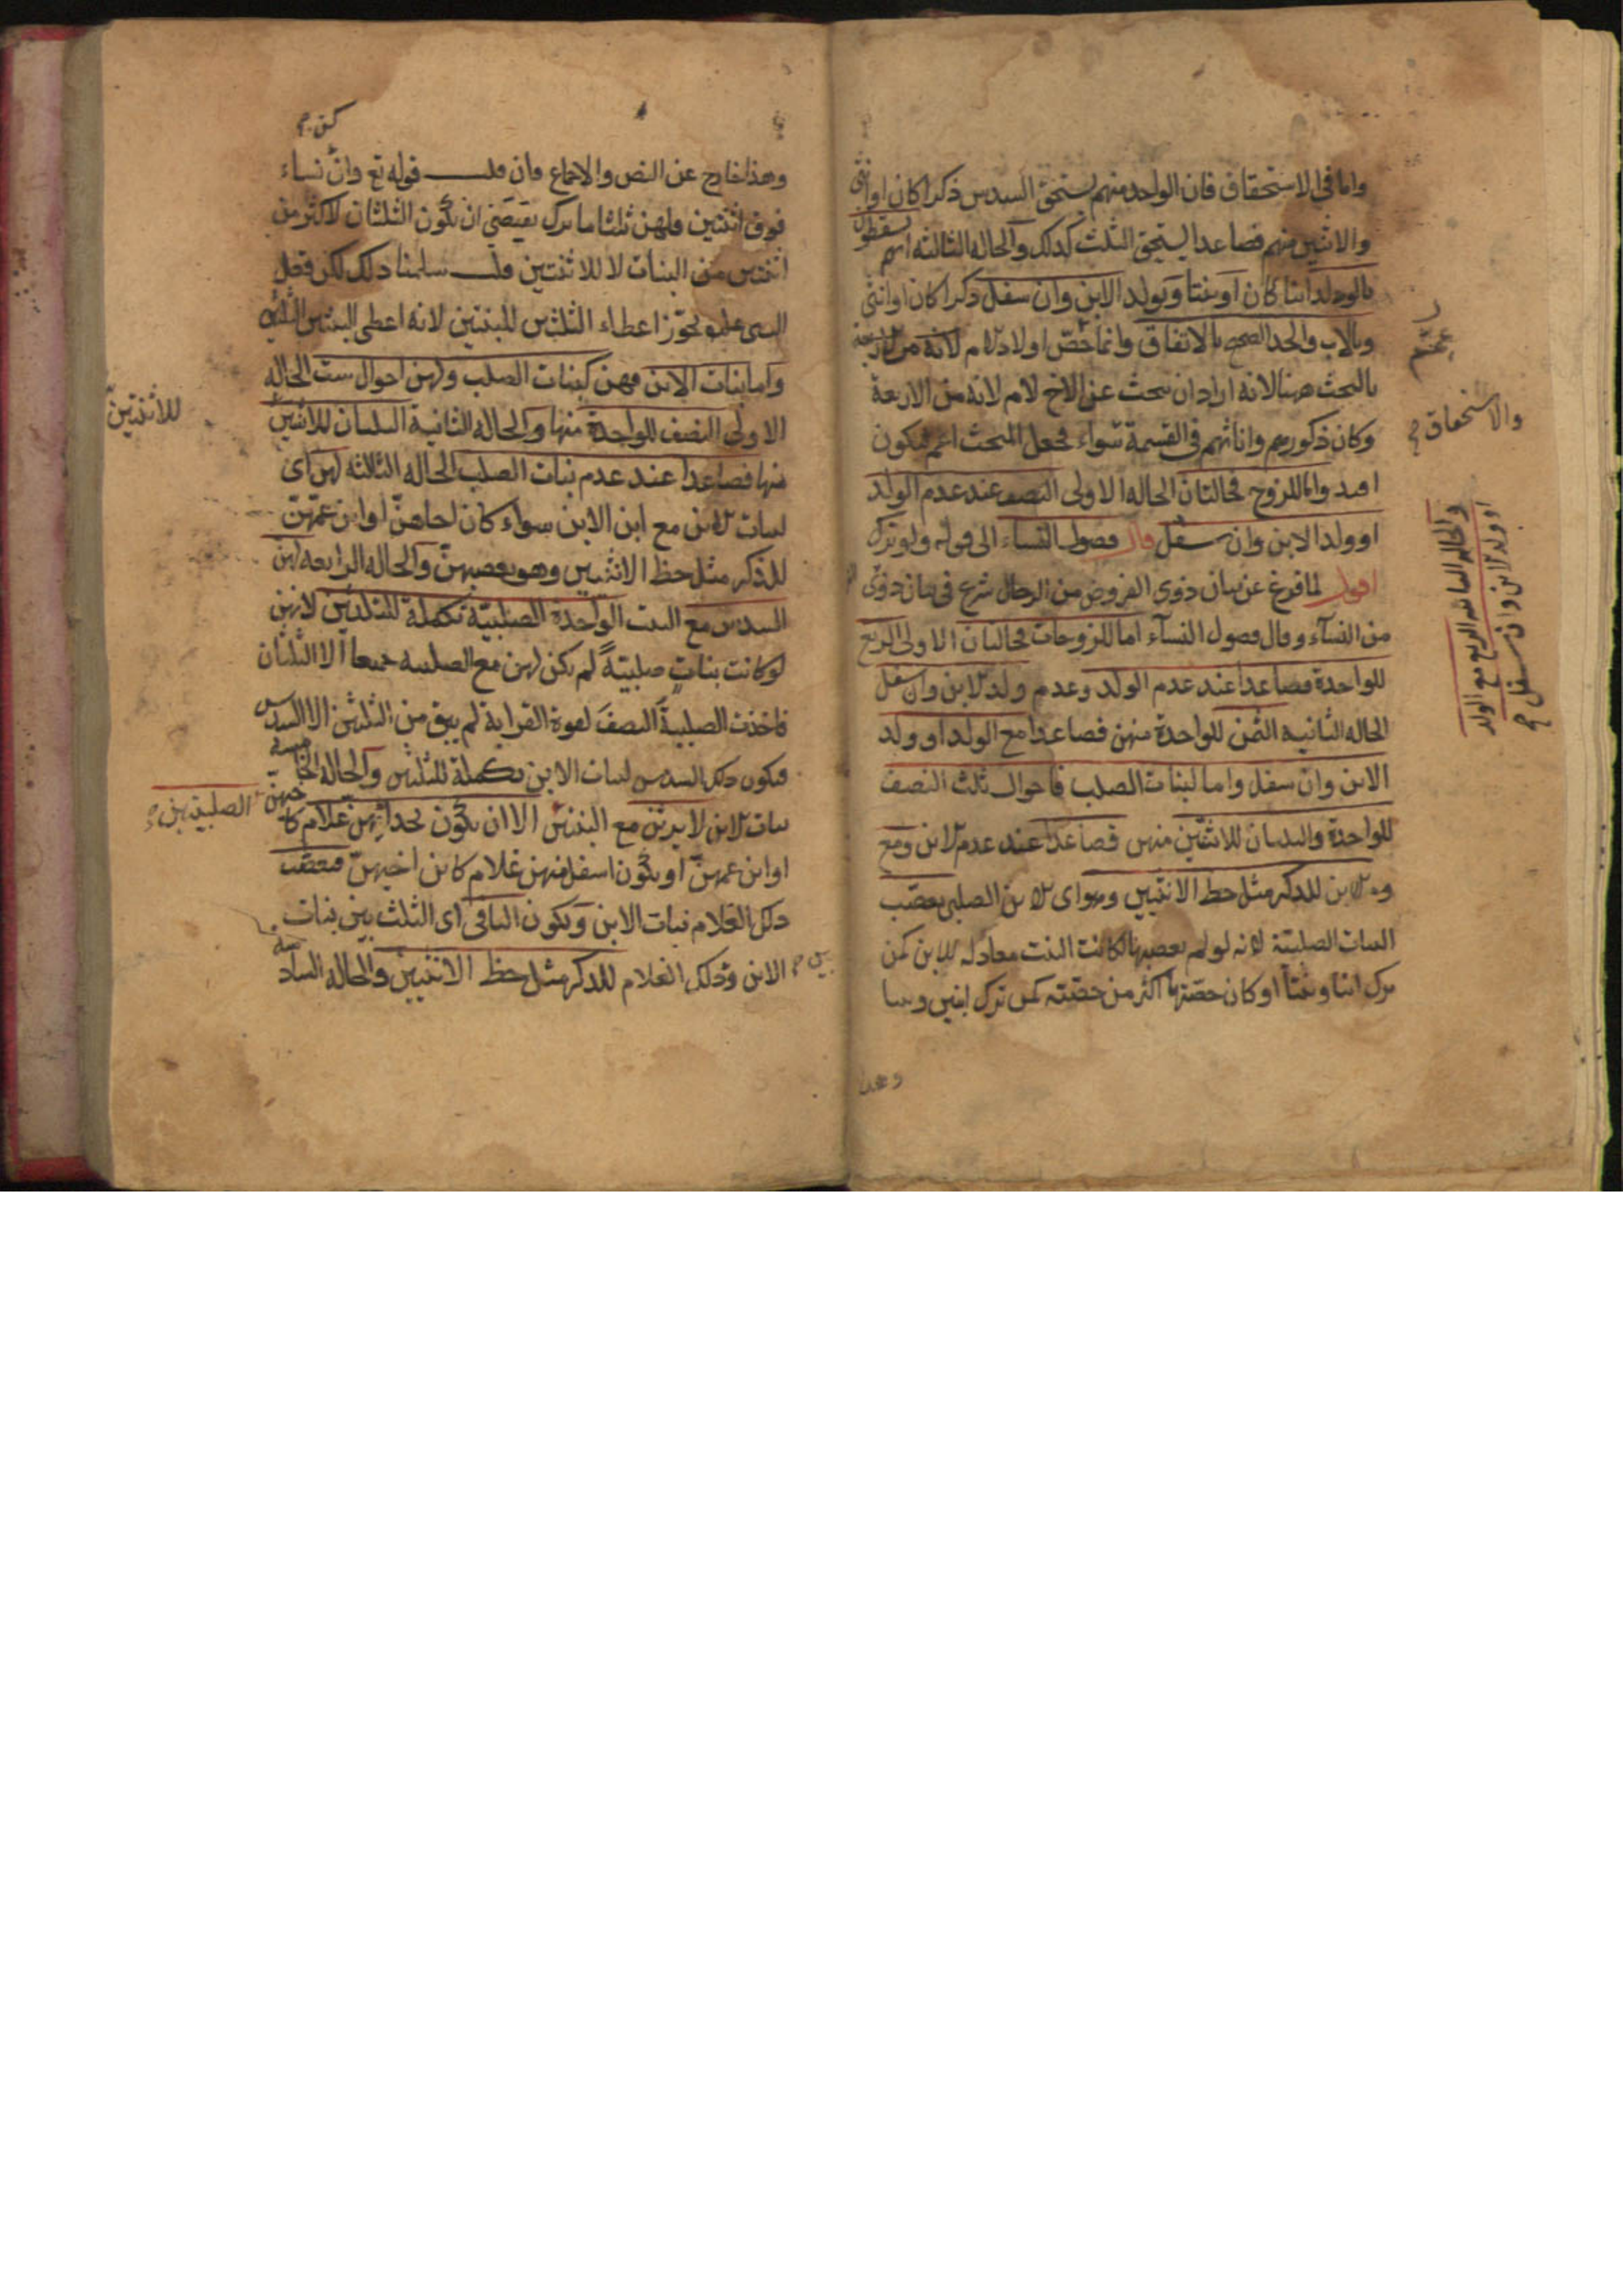 واما فى الاستحقاق فان الواحد منهم يستحق السدس ذكرا كان او انثى
والاثنين منهم فصاعدا يستحق الثلث كذلك والحاله الثالثه انهم يسقطون
بالولد ابنا كان او بنتا وبولد الابن وان سفل ذكرا كان او انثى
وبالاب والجد الصحيح بالاتفاق وانما خص اولاد الام لانه من
بالبحث ههنا لانه اراد ان يبحث عن الاخ لام لانه من الاربعة
وكان ذكورهم واناثهم فى القسمة سواء فجعل المبحث اعم فيكون
افيد واما للزوج فحالتان الحاله الاولى النصف عند عدم الولد
او ولد الابن وان سفل قال فصول النساء الى قوله ولو ترك
اقول لما فرغ عن بيان ذوى الفروض من الرجال شرع فى بيان ذوى
من النسآء وقال فصول النسآء اما للزوجات فحالتان الاولى الربع
للواحدة فصاعدا عند عدم الولد وعدم ولد الابن وان سفل
الحاله الثانيه الثمن للواحدة منهن فصاعدا مع الولد او ولد
الابن وان سفل واما لبنات الصلب فاحوال ثلث النصف
للواحدة والثلثان للاثنتين منهن فصاعدا عند عدم الابن ومع
الابن للذكر مثل حظ الانثيين وهو اى الابن الصلبى يعصب
البنات الصلبية لانه لو لم يعصبها لكانت البنت معادله للابن كمن
ترك ابنا وبنتا او كان حصتها اكثر من حصته كمن ترك ابنين وبنتا
وهذا
والاستحقاق
والحاله الثانيه الربع مع الولد
او ولد الابن وان سفل
وهذا خارج عن النص والاجماع فان قلت قوله تع وان نساء
فوق اثنتين فلهن ثلثا ما ترك يقتضى ان يكون الثلثان لاكثر من
اثنتين من البنات لا للاثنتين قلت سلمنا ذلك لكن فعل
النبى علم يجوز اعطاء الثلثين للبنتين لانه اعطى البنتين الثلثين
واما بنات الابن فهن كبنات الصلب ولهن احوال ست الحاله
الاولى النصف للواحدة منها والحاله الثانية الثلثان للاثنتين
منها فصاعدا عند عدم بنات الصلب الحاله الثالثه لهن اى
لبنات الابن مع ابن الابن سواء كان اخاهن او ابن عمهن
للذكر مثل حظ الانثيين وهو يعصبهن والحاله الرابعه لهن
السدس مع البنت الواحدة الصلبية تكملة للثلثين لانهن
لو كانت بنات صلبية لم يكن لهن مع الصلبيه جميعا الا الثلثان
فاخذت الصلبية النصف لقوة القرابة لم يبق من الثلثين الا السدس
فيكون ذلك السدس لبنات الابن تكملة للثلثين والحاله الخامسه
بنات الابن لا يرثن مع البنتين الا ان يكون بحذائهن غلام كاخيهن
او ابن عمهن او يكون اسفل منهن غلام كابن اخيهن فيعصب
ذلك الغلام بنات الابن ويكون الباقى اى الثلث بين بنات
الابن وذلك الغلام للذكر مثل حظ الانثيين والحاله السادسه
للاثنتين
الصلبيتين
بين